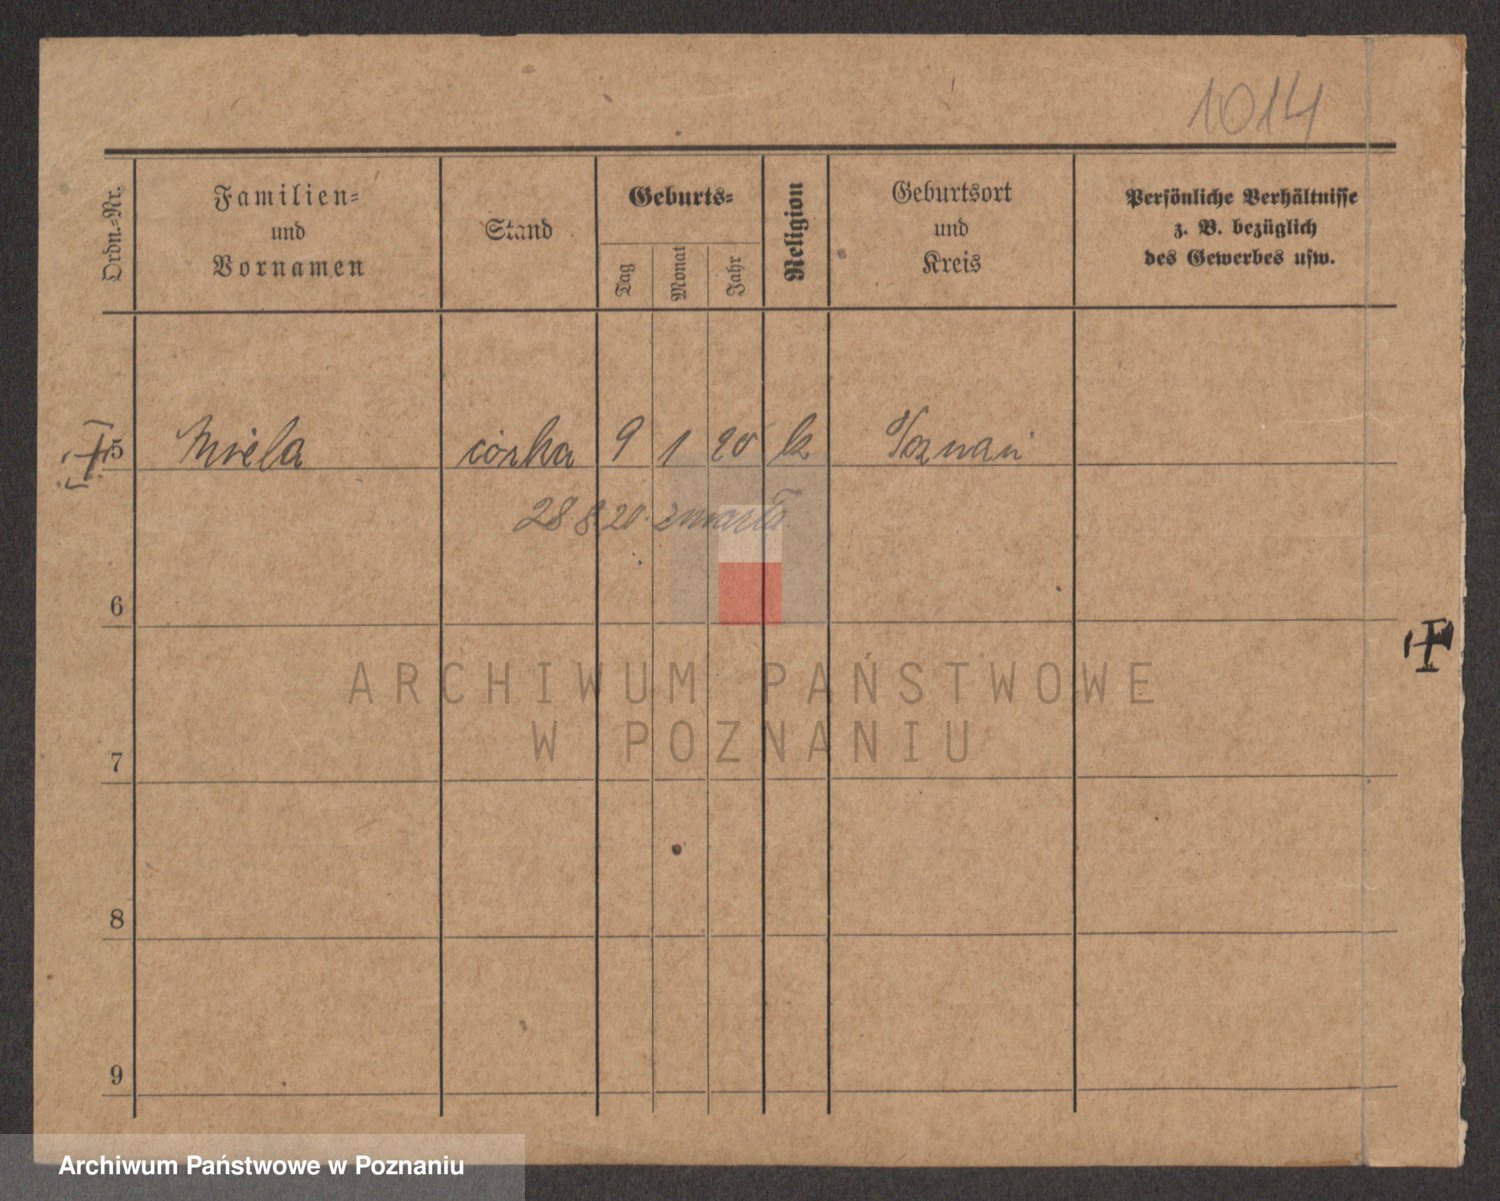 1014
Ordn.-Nr.
Familien-
und
Vornamen
Stand
Geburts-
Tag
Monat
Jahr
Religion
Geburtsort
und
Kreis
Persönliche Verhältnisse
z. B. bezüglich
des Gewerbes usw.
5 córka 9 1 20 k Poznań
28 8 20. zmarła
6
ARCHIWUM PAŃSTWOWE
W POZNANIU
7
8
9
Archiwum Państwowe w Poznaniu